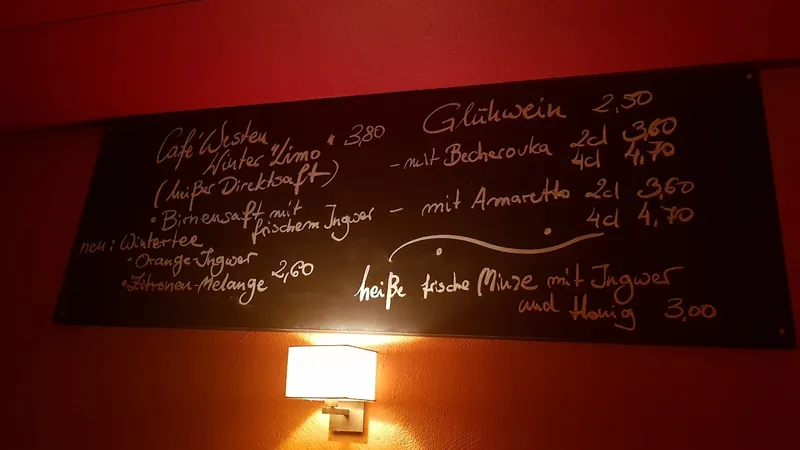 Café Westen
Winter "Limo" 3,80
(heißer Direktsaft)
• Birnensaft mit
frischem Ingwer
neu: Wintertee
• Orange-Ingwer
• Zitronen-Melange 2,60
Glühwein 2,50
- mit Becherovka 2cl 3,60
4cl 4,70
- mit Amaretto 2cl 3,60
4cl 4,70
heiße frische Minze mit Ingwer
und Honig 3,00